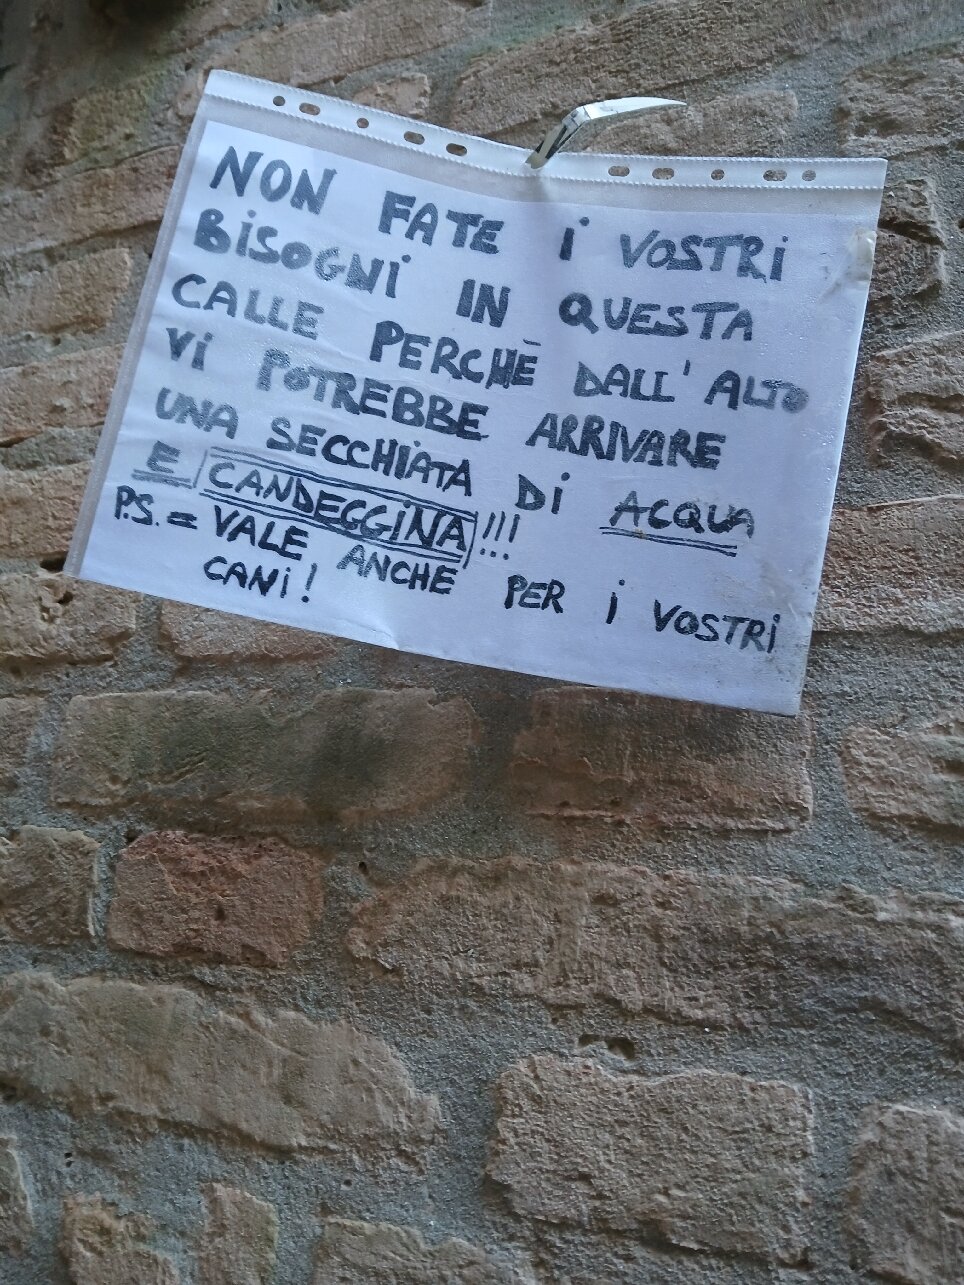 NON FATE i VOSTRi
BiSOGNi IN QUESTA
CALLE PERCHÈ DALL'ALTO
Vi POTREBBE ARRIVARE
UNA SECCHiATA Di ACQUA
E CANDEGGiNA!!!
P.S. = VALE ANCHE PER i VOSTRi
CANi!